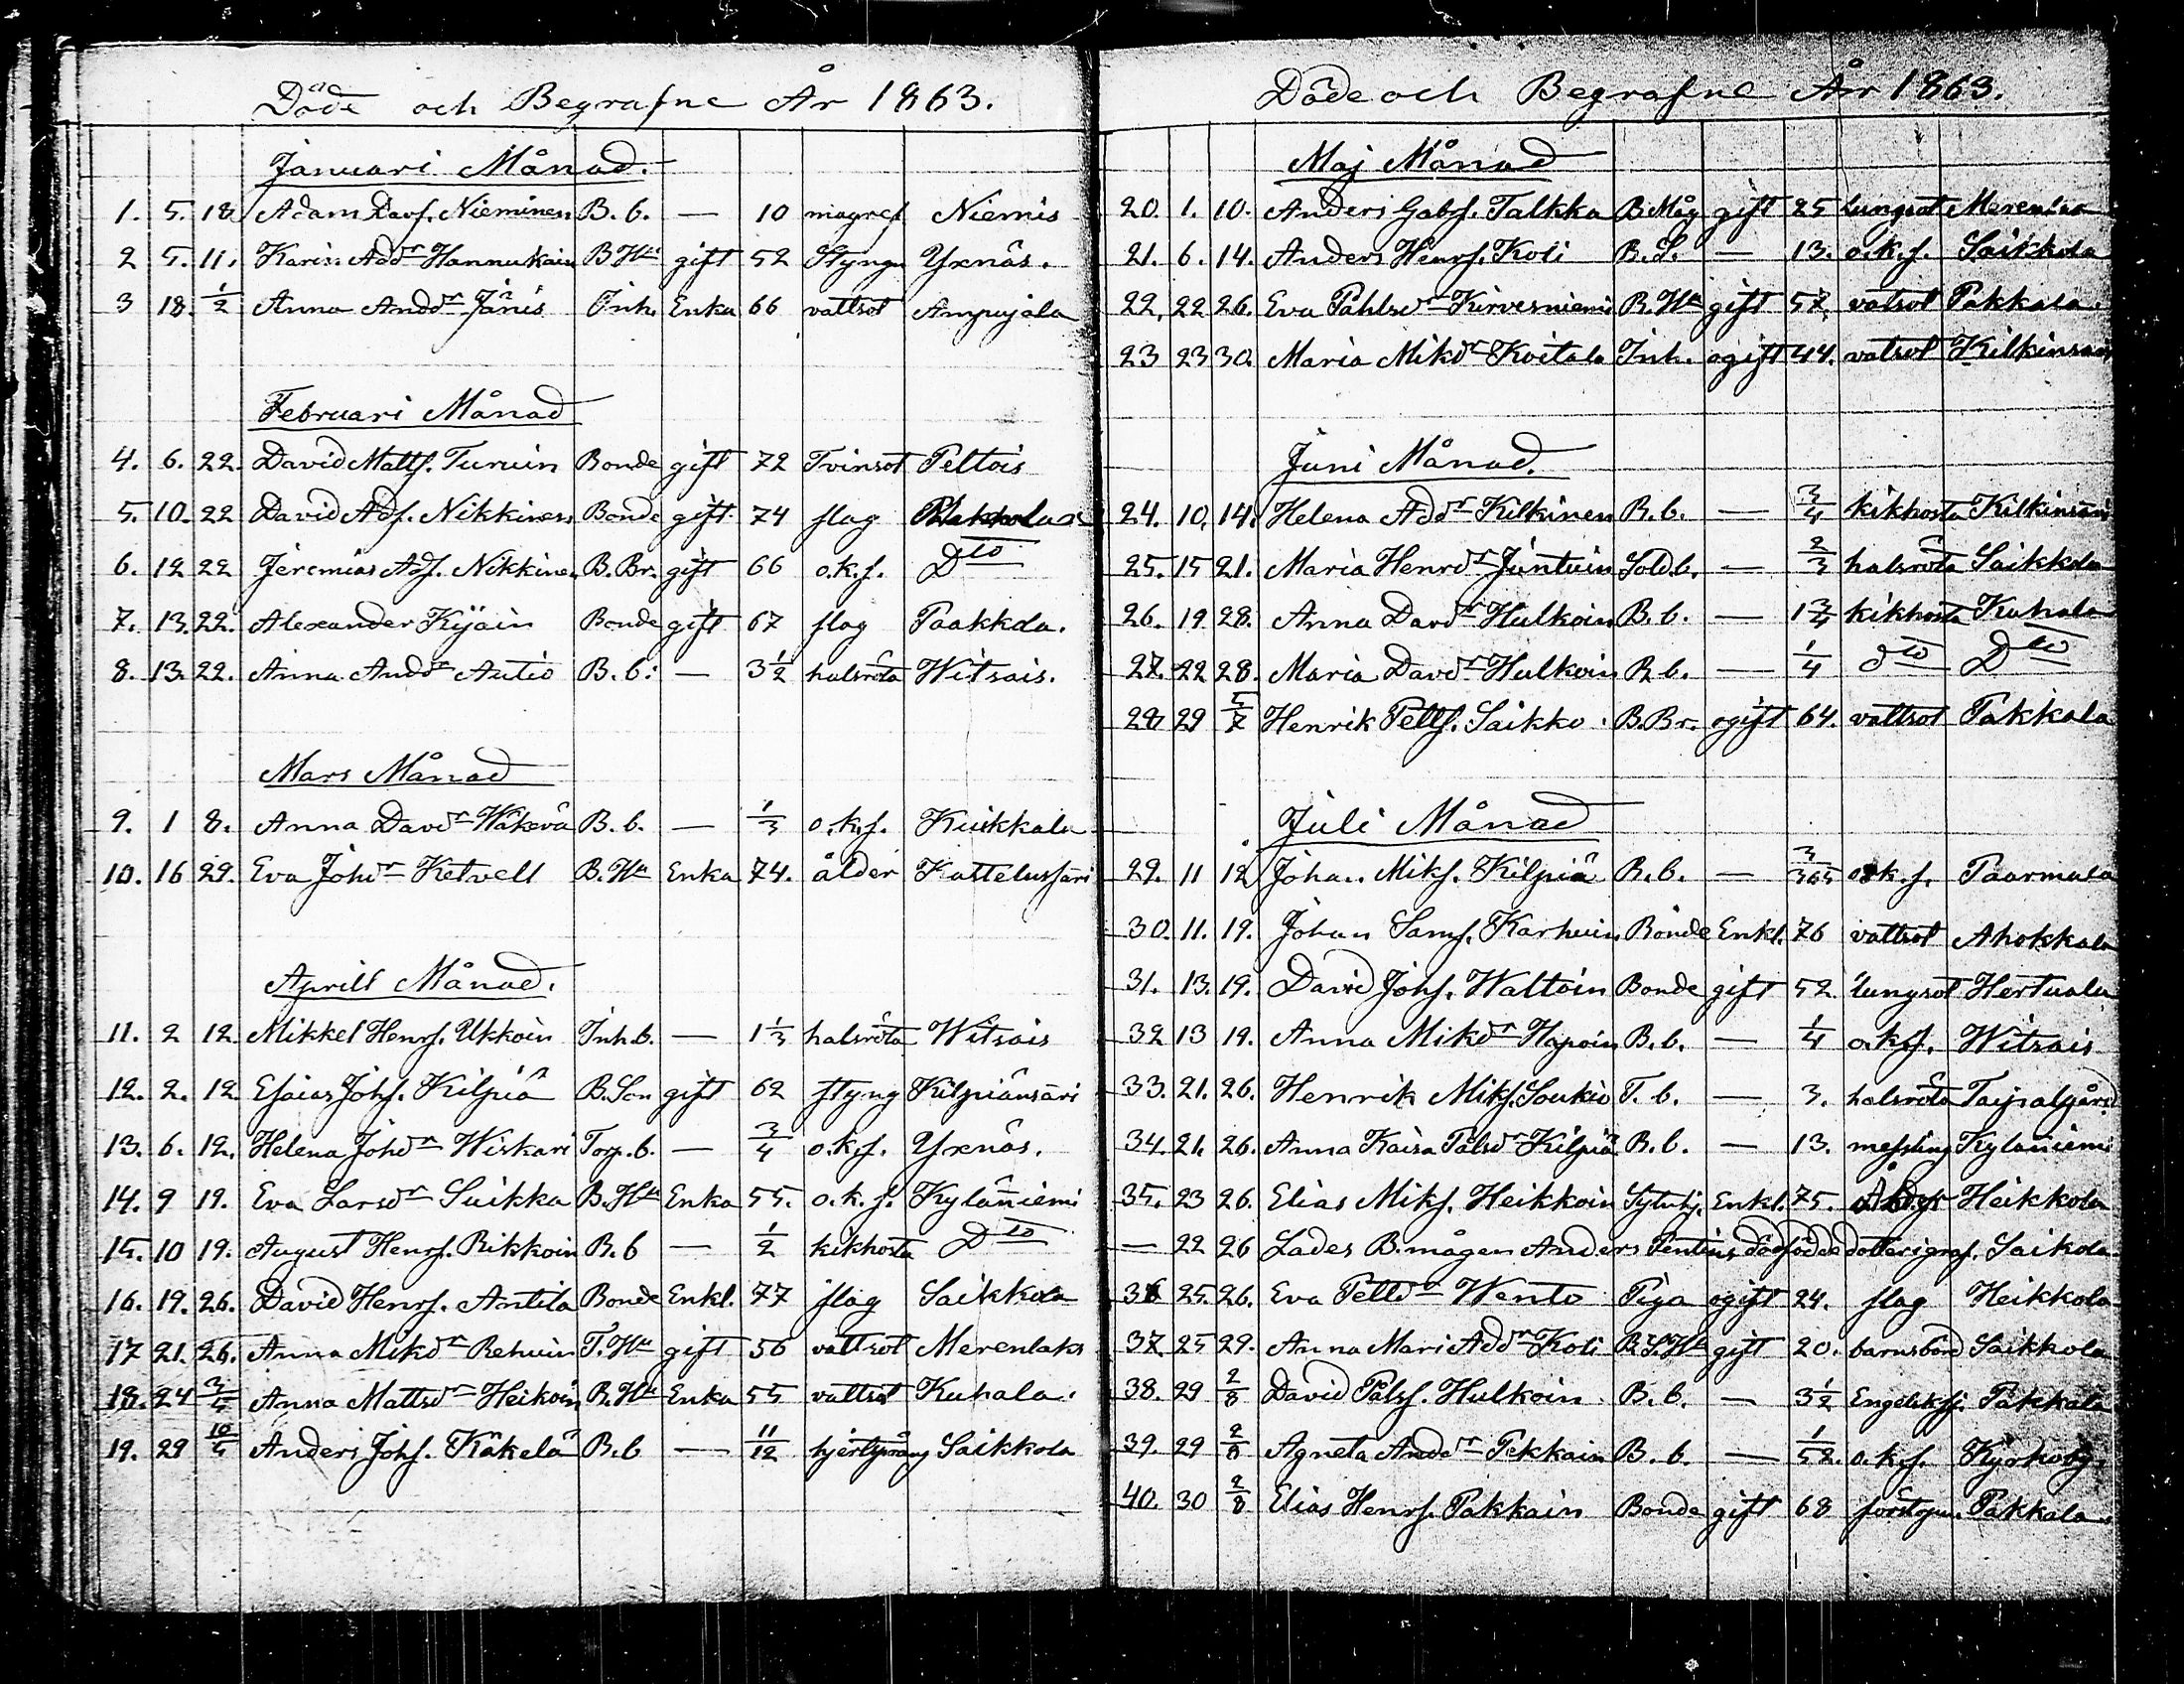 Döde och Begrafne År 1863.
Januari Månad.
1. 5. 18. Adam Davs. Nieminen B. b. — 10 magref Niemis
2 5. 11. Karin Add:r Hannukain B. H:u gift 52 Styng Yxnäs.
3 18. 1/2 Anna Andd:r Jänis Inh. Enka 66 vattsot Ampujala
Februari Månad
4. 6. 22. David Matts. Turuin Bonde gift 72 Tvinsot Peltois
5. 10. 22 David Ads. Nikkinen Bonde gift 74 slag
6. 12 22 Jeremias Ads. Nikkinen B. Br. gift 66 o.k.s. D:to
7. 13. 22. Alexander Kijäin Bonde gift 67 slag Paakkola.
8. 13. 22. Anna Andd:r Autio B. b. — 3 1/2 halsröta Witsais.
Mars Månad
9. 1 8. Anna Davd:r Wäkevä B. b. — 1/3 o.k.s. Kuikkala
10. 16 29. Eva Johd:r Ketvell B. H:u Enka 74. ålder Kattelussari
Aprill Månad.
11. 2 12. Mikkel Henrs. Ukkoin Inh. b. — 1 1/3 halsröta Witsais
12. 2. 12 Esaias Johs. Kilpiä B. Son gift 62 styng Kilpiänsäri
13. 6. 12. Helena Johd:r Wiskari Torp. b. — 3/4 o.k.s. Yxnäs.
14. 9 19. Eva Larsd:r Suikka B. H:u Enka 55. o.k.s. Kyläniemi
15. 10 19. August Henrs. Rikkoin B. b — 1/2 kikhosta D:to
16. 19. 26. David Henrs. Antila Bonde Enkl. 77 slag Saikkola
17 21. 26. Anna Mikd:r Rehuin T. H:u gift 56 vattsot Merenlaks
18. 24 3/5 Anna Mattsd:r Heikoin B. H:u Enka 55 vattsot Kuhala.
19. 29 10/4 Anders Johs. Käkelä B. b — 11/12 hjertsprång Saikkola
Döde och Begrafne År 1863.
Maj Månad
20. 1. 10. Anders Gabs. Talkka B. Måg gift 25 lungsot Merenlax
21. 6. 14. Anders Henrs. Koli B. S. — 13. o.k.s. Saikkola
22. 22 26. Eva Påhlsd:r Kirvesniemi B. H:u gift 57. vatsot Pakkala.
23 23 30. Maria Mikd:r Koitala Inh. ogift 44. vatsot Kilkinsaari
Juni Månad.
24. 10. 14. Helena Add:r Kilkinen B. b. — 3/4 kikhosta Kilkinsäri
25. 15 21. Maria Henrd:r Juntuin Sold. b. — 2/3 halsröta Saikkola
26. 19 28. Anna Davd:r Hulkoin B. b. — 1 3/4 kikhosta Kuhala
27. 22 28. Maria Davd:r Hulkoin B. b. — 1/4 d:to D:to
28. 29 5/7 Henrik Petts. Saikko. B. Br. ogift 64. vattsot Pakkala
Juli Månad
29. 11 12 Johan. Miks. Kilpiä B. b. — 3/365 o.k.s. Paarmala
30. 11. 19. Johan Sams. Karhuin. Bonde Enkl. 76 vattsot Ahokkala
31. 13. 19. David Johs. Waltoin Bonde gift 52. lungsot Hertuala
32 13 19. Anna Mikd:r Hapoin B. b. — 1/4 o.k.s. Witsais
33. 21. 26. Henrik Miks. Soukio T. b. — 3. halsröta Taipalgård
34. 21. 26. Anna Kaisa Pålsd:r Kilpiä B. b. — 13. messling Kyläniemi
35. 23 26. Elias Miks. Heikkoin Sytnhj. Enkl. 75. Heikkola
— 22 26 Lades B. mågen Anders Pentins dödfödde dotter i graf. Saikola
36 25. 26. Eva Pettd:r Wento Piga ogift 24. slag Heikkola
37. 25 29. Anna Mari Add:r Koli B. S. H:u gift 20. barnsbörd Saikkola
38. 29 2/8 David Pålss. Hulkoin. B. b. — 3 1/2 Engelsksj. Pakkala
39. 29 2/8 Agneta Andd:r Pekkain B. b. — 1/52. o.k.s. Kyrkoby.
40. 30 2/8 Elias Henrs. Pakkain Bonde gift 68 förstopn. Pakkala.